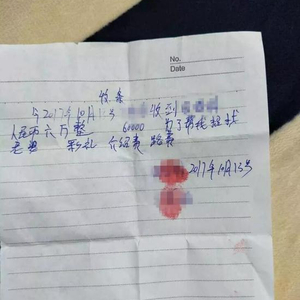 No.
Date
收条
今2017年10月13号 收到
人民币六万整 60000 为了帮找媳妇
彩礼 介绍费 路费
2017年10月13号